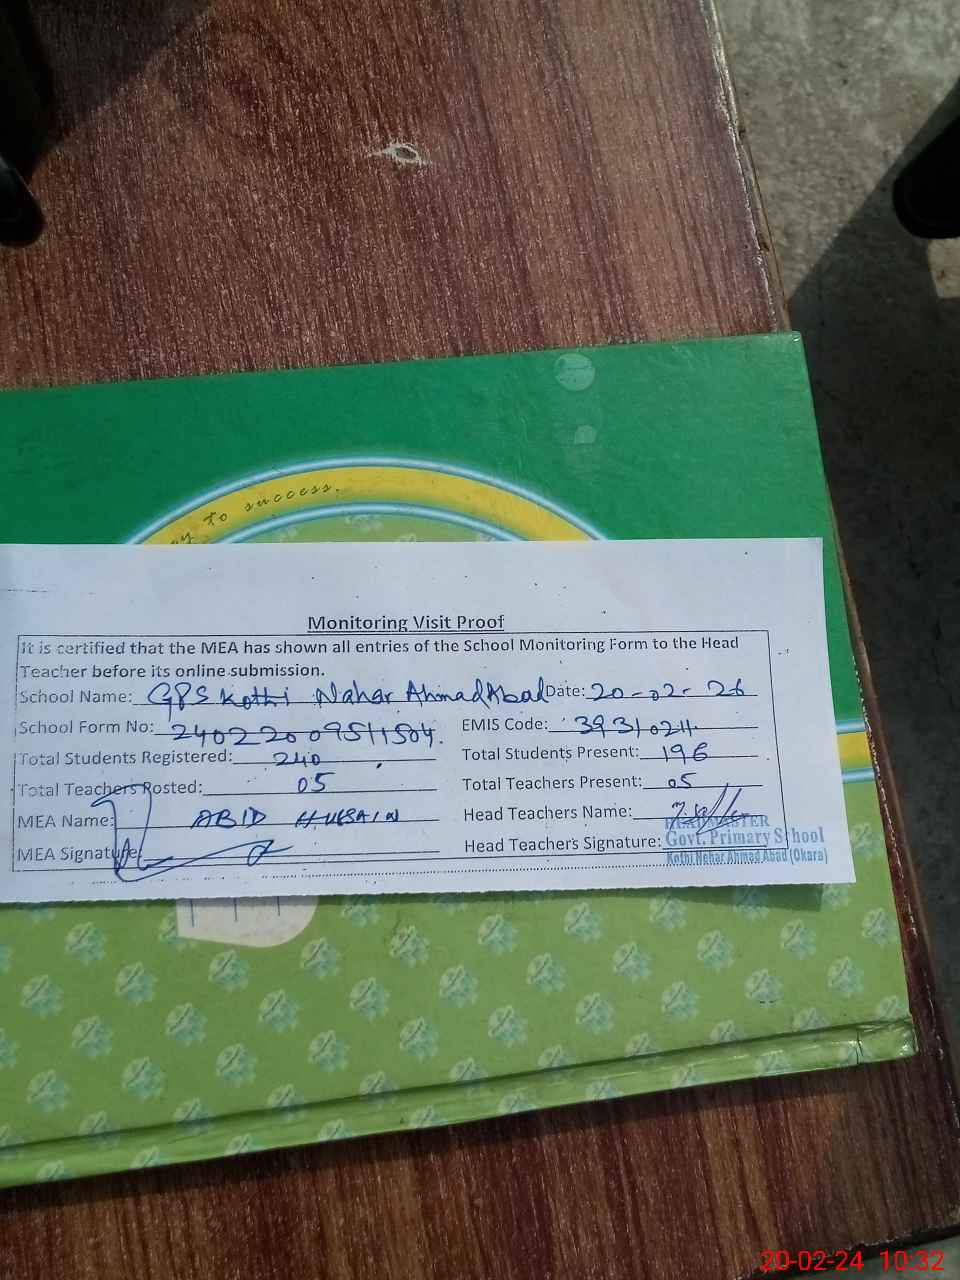 ay to success.
Monitoring Visit Proof
It is certified that the MEA has shown all entries of the School Monitoring Form to the Head
Teacher before its online submission.
School Name: GPS Kothi Nahar AhmadAbad Date: 20-02-26
School Form No: 24022009511504. EMIS Code: 39310211.
Total Students Registered: 240 Total Students Present: 196
Total Teachers Posted: 05 Total Teachers Present: 05
MEA Name: ABID HUSSAIN Head Teachers Name:
MEA Signature: Head Teachers Signature:
HEADMASTER
Govt. Primary School
Kothi Nehar Ahmad Abad (Okara)
20-02-24 10:32